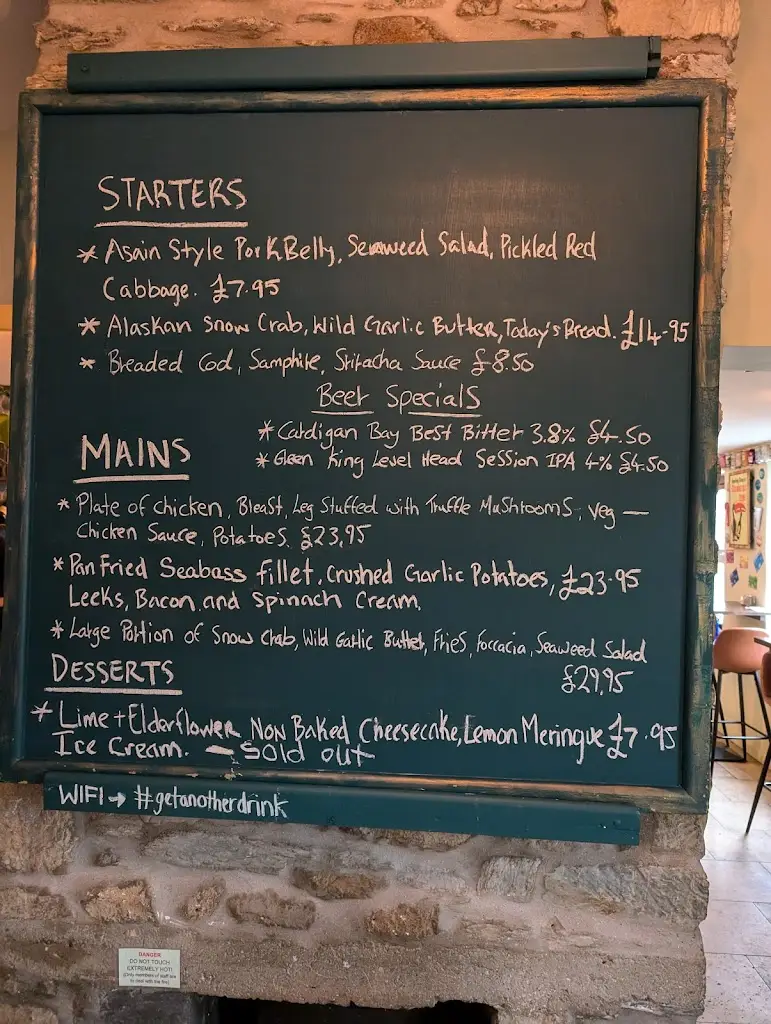 STARTERS
* Asain Style Pork Belly, Seaweed Salad, Pickled Red
Cabbage. £7.95
* Alaskan Snow Crab, Wild Garlic Butter, Today's Bread. £14.95
* Breaded Cod, Samphire, Sriracha Sauce £8.50
Beer Specials
* Cardigan Bay Best Bitter 3.8% £4.50
* Green King Level Head Session IPA 4% £4.50
MAINS
* Plate of chicken, Breast, Leg Stuffed with Truffle Mushrooms, veg —
Chicken Sauce, Potatoes. £23.95
* Pan Fried Seabass fillet, Crushed Garlic Potatoes, £23.95
Leeks, Bacon, and Spinach Cream.
* Large Portion of Snow Crab, Wild Garlic Butter, Fries, Foccacia, Seaweed Salad
£29.95
DESSERTS
* Lime + Elderflower Non Baked Cheesecake, Lemon Meringue £7.95
Ice Cream. — Sold out
WIFI → #getanotherdrink
DANGER
DO NOT TOUCH
EXTREMELY HOT!
(Only members of staff are
to deal with the fire)